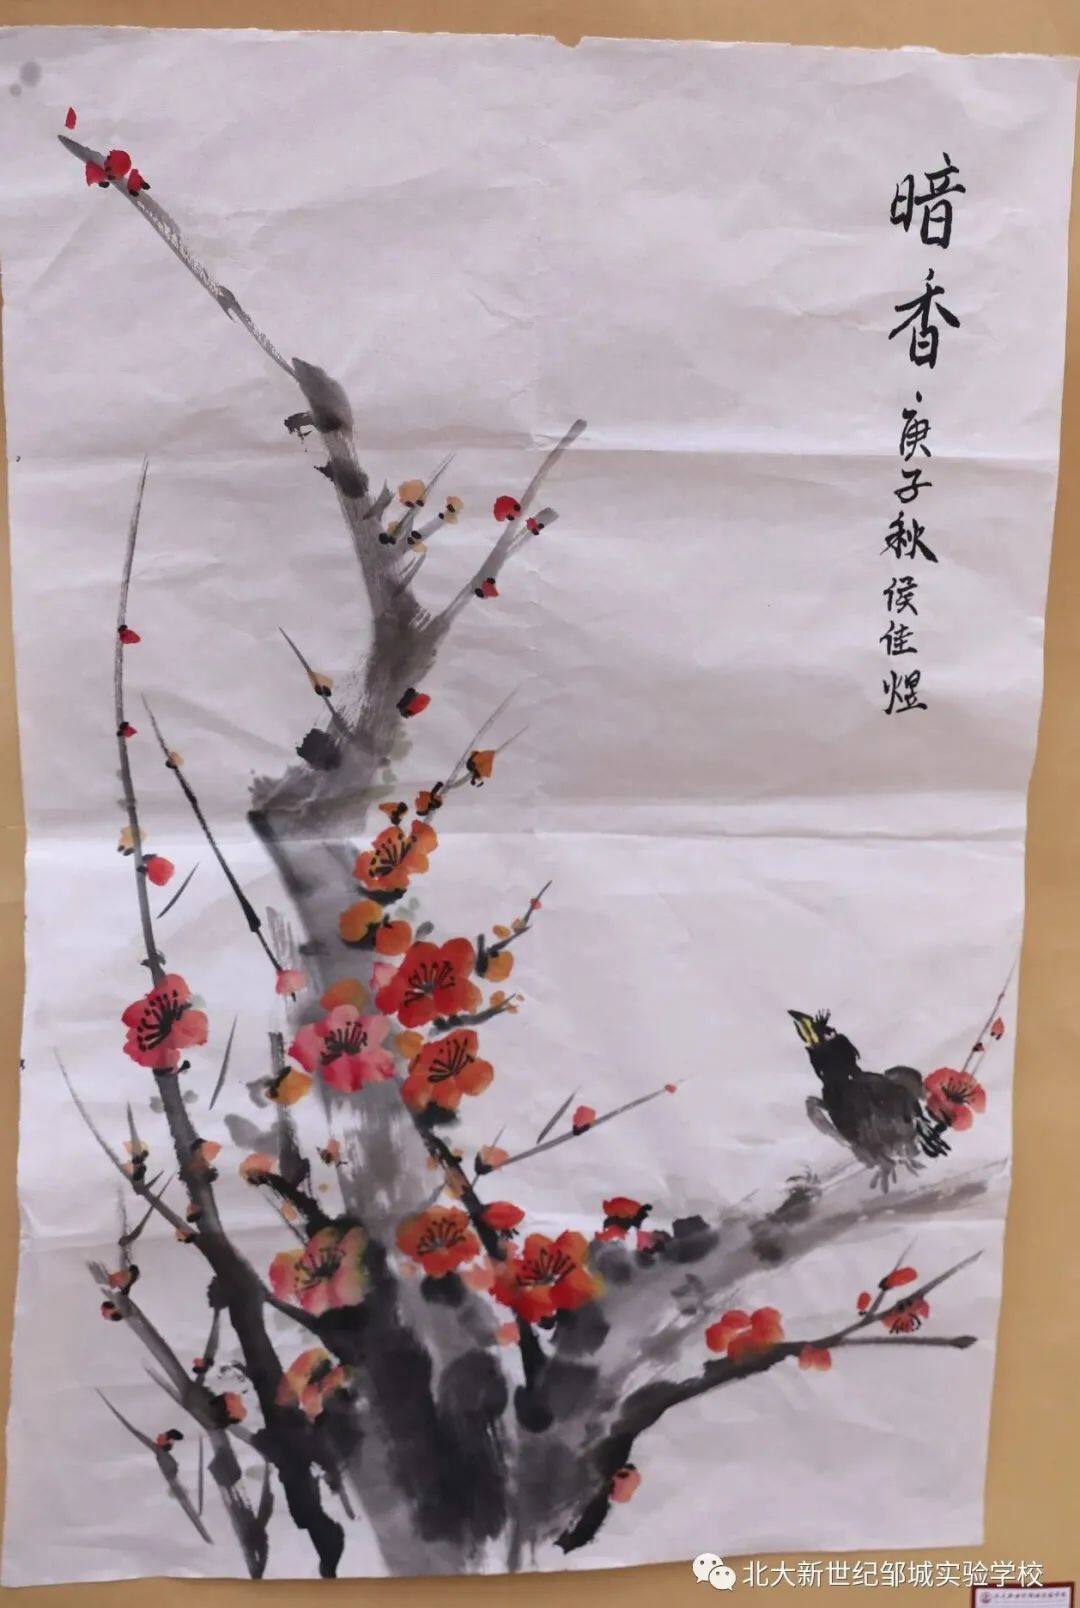 暗香
庚子秋 侯佳煜
北大新世纪邹城实验学校